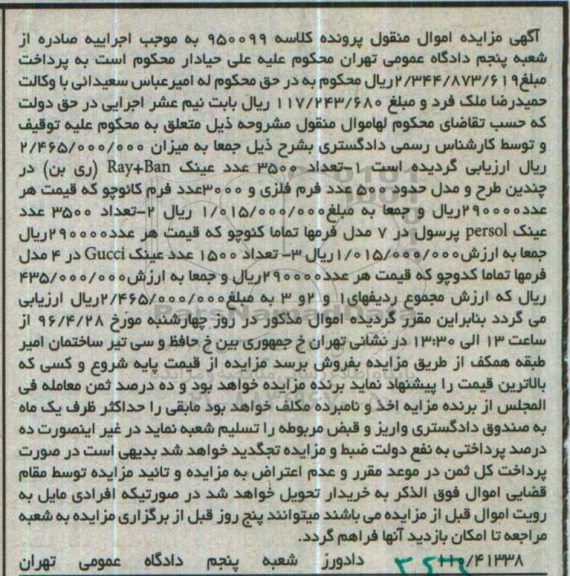 آگهی مزایده اموال منقول پرونده کلاسه ۹۵۰۰۹۹ به موجب اجراییه صادره از
شعبه پنجم دادگاه عمومی تهران محکوم علیه علی حیادار محکوم است به پرداخت
مبلغ۲/۳۴۴/۸۷۳/۶۱۹ریال محکوم به در حق محکوم له امیرعباس سعیدانی با وکالت
حمیدرضا ملک فرد و مبلغ ۱۱۷/۲۴۳/۶۸۰ ریال بابت نیم عشر اجرایی در حق دولت
که حسب تقاضای محکوم لهاموال منقول مشروحه ذیل متعلق به محکوم علیه توقیف
و توسط کارشناس رسمی دادگستری بشرح ذیل جمعا به میزان ۲/۴۶۵/۰۰۰/۰۰۰
ریال ارزیابی گردیده است. ۱-تعداد ۳۵۰۰ عدد عینک Ray+Ban (ری بن) در
چندین طرح و مدل حدود ۵۰۰ عدد فرم فلزی و ۳۰۰۰عدد فرم کائوچو که قیمت هر
عدد۲۹۰۰۰۰ریال و جمعا به مبلغ۱/۰۱۵/۰۰۰/۰۰۰ ریال ۲-تعداد ۳۵۰۰ عدد
عینک persol پرسول در ۷ مدل فرمها تماما کئوچو که قیمت هر عدد۲۹۰۰۰۰ریال
جمعا به ارزش۱/۰۱۵/۰۰۰/۰۰۰ریال ۳- تعداد ۱۵۰۰ عدد عینک Gucci در ۴ مدل
فرمها تماما کدوچو که قیمت هر عدد۲۹۰۰۰۰ریال و جمعا به ارزش۴۳۵/۰۰۰/۰۰۰
ریال که ارزش مجموع ردیفهای۱ و ۲و ۳ به مبلغ۲/۴۶۵/۰۰۰/۰۰۰ریال ارزیابی
می گردد بنابراین مقرر گردیده اموال مذکور در روز چهارشنبه مورخ ۹۶/۴/۲۸ از
ساعت ۱۳ الی ۱۳:۳۰ در نشانی تهران خ جمهوری بین خ حافظ و سی تیر ساختمان امیر
طبقه همکف از طریق مزایده بفروش برسد مزایده از قیمت پایه شروع و کسی که
بالاترین قیمت را پیشنهاد نماید برنده مزایده خواهد بود و ده درصد ثمن معامله فی
المجلس از برنده مزایه اخذ و نامبرده مکلف خواهد بود مابقی را حداکثر ظرف یک ماه
به صندوق دادگستری واریز و قبض مربوطه را تسلیم شعبه نماید در غیر اینصورت ده
درصد پرداختی به نفع دولت ضبط و مزایده تجگدید خواهد شد بدیهی است در صورت
پرداخت کل ثمن در موعد مقرر و عدم اعتراض به مزایده و تائید مزایده توسط مقام
قضایی اموال فوق الذکر به خریدار تحویل خواهد شد در صورتیکه افرادی مایل به
رویت اموال قبل از مزایده می باشند میتوانند پنج روز قبل از برگزاری مزایده به شعبه
مراجعه تا امکان بازدید آنها فراهم گردد.
دادورز شعبه پنجم دادگاه عمومی تهران